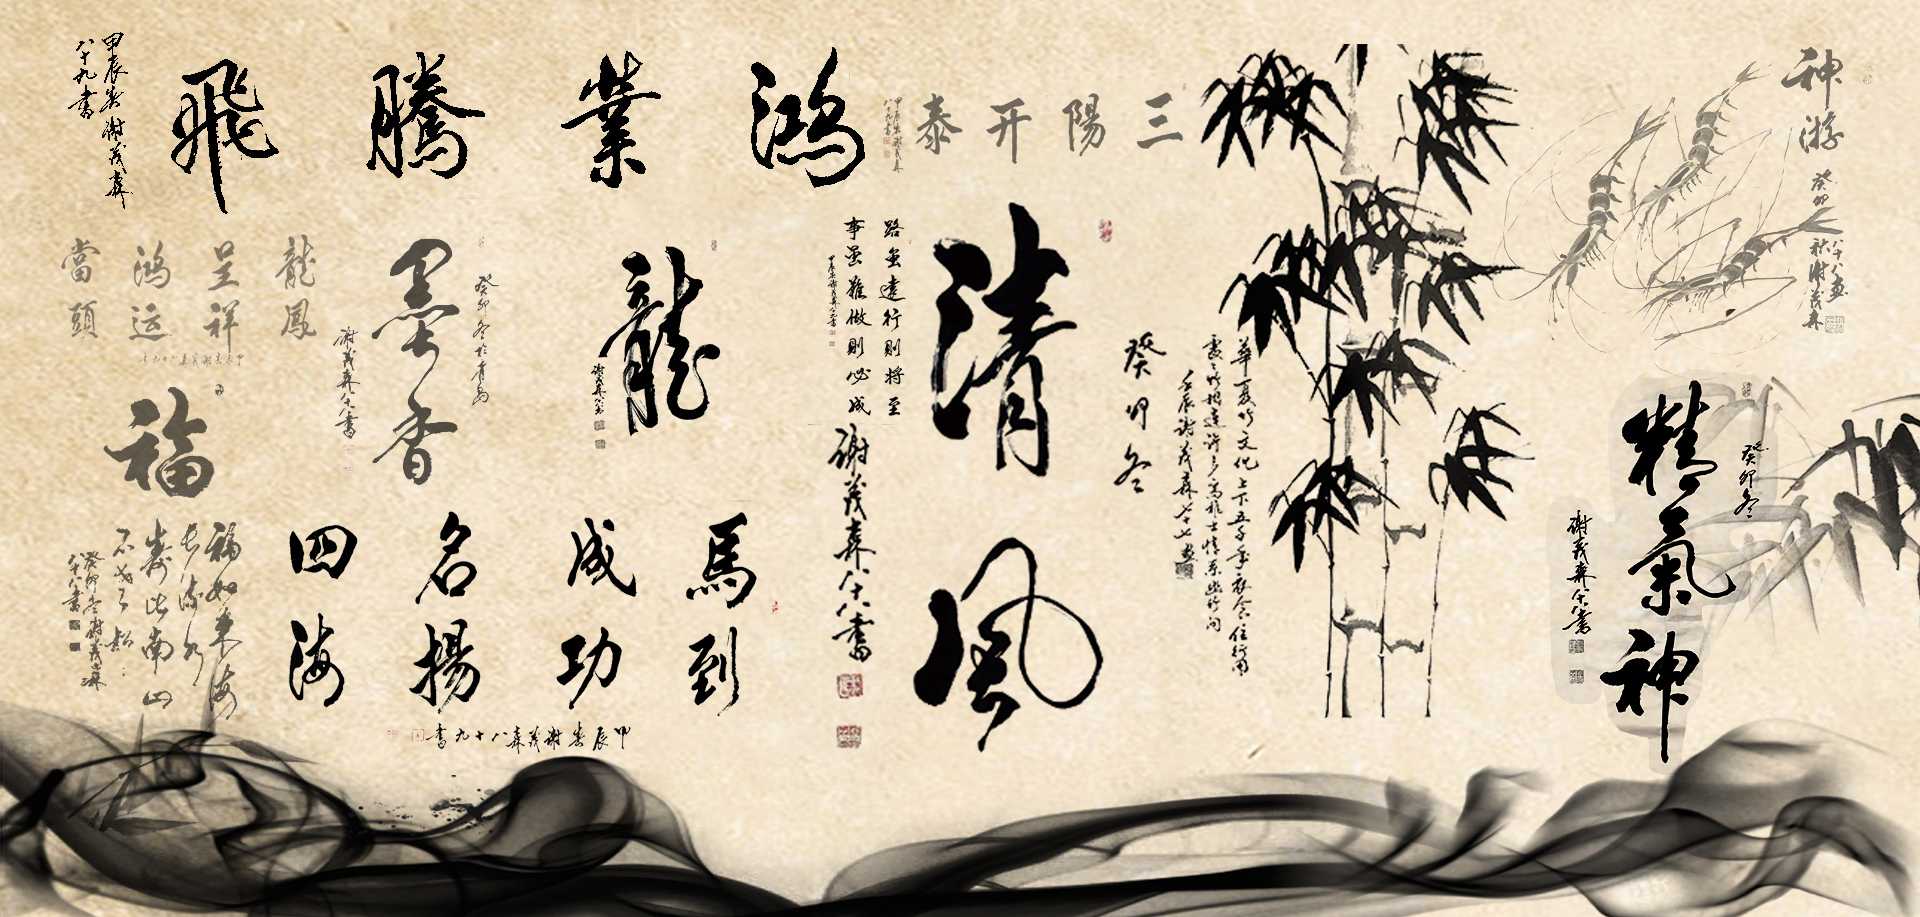 鴻業騰飛
甲辰春谢茂森
八十九書
三陽开泰
神游
癸卯
秋谢茂森
八十八画
清風
癸卯冬
谢茂森八十八書
路虽遠行則将至
事虽難做則必成
龍
墨香
癸卯冬於青島
谢茂森八十八書
龍鳳
呈祥
鴻运
當頭
福
福如東海
長流水
寿比南山
不老松
癸卯冬谢茂森
八十八書
馬到
成功
名揚
四海
甲辰春谢茂森八十九書
華夏竹文化上下五千年衣食住行用
壬辰谢茂森七十七画
精氣神
癸卯冬
谢茂森八十八書